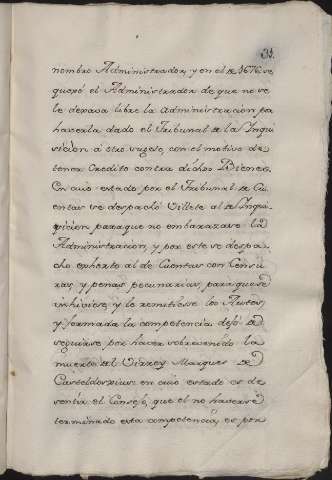 31.
nombro Administrador, y en el de 1676 se
quexó el Administrador de que no se
le dexava libre la administracion pa
haversela dado el Tribunal de la Inqui
sicion á otro sugeto, con el motivo de
tener Credito contra dichos Bienes.
En cuio estado por el Tribunal de Cu
entas se despachó Villete al de Inqui
sicion para que no embarazase la
Administracion, y por este se despa
cho exhorto al de Cuentas con Censu
ras, y penas pecuniarias, para que se
inhiviese, y le remitiesse los Autos,
y formada la competencia dejó de
seguirse por haver sobrevenido la
muerte del Virrey Marques de
Casteldosrius: en cuio estado es de
sentir el Consejo, que el no haverse
terminado esta competencia, es por